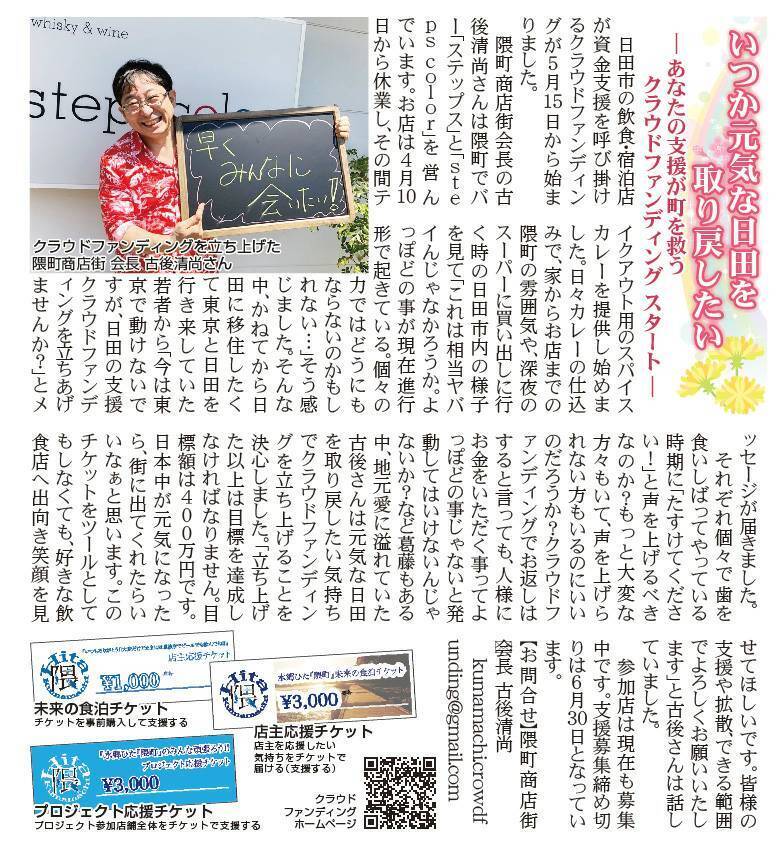 いつか元気な日田を
取り戻したい
―あなたの支援が町を救う
クラウドファンディング スタート―
whisky & wine
step
早く
みんなに
会いたい!
クラウドファンディングを立ち上げた
隈町商店街 会長 古後清尚さん
日田市の飲食・宿泊店
が資金支援を呼び掛け
るクラウドファンディン
グが5月15日から始ま
りました。
隈町商店街会長の古
後清尚さんは隈町でバ
ー「ステップス」と「ste
ps color」を営ん
でいます。お店は4月10
日から休業し、その間テ
イクアウト用のスパイス
カレーを提供し始めま
した。日々カレーの仕込
みで、家からお店までの
隈町の雰囲気や、深夜の
スーパーに買い出しに行
く時の日田市内の様子
を見て「これは相当ヤバ
イんじゃなかろうか。よ
っぽどの事が現在進行
形で起きている。個々の
力ではどうにも
ならないのかもし
れない…」そう感
じました。そんな
中、かねてから日
田に移住したく
て東京と日田を
行き来していた
若者から「今は東
京で動けないで
すが、日田の支援
クラウドファンデ
ィングを立ちあげ
ませんか?」とメ
ッセージが届きました。
それぞれ個々で歯を
食いしばってやっている
時期に「たすけてくださ
い!」と声を上げるべき
なのか?もっと大変な
方々もいて、声を上げら
れない方もいるのにいい
のだろうか?クラウドフ
ァンディングでお返しは
すると言っても、人様に
お金をいただく事ってよ
っぽどの事じゃないと発
動してはいけないんじゃ
ないか?など葛藤もある
中、地元愛に溢れていた
古後さんは元気な日田
を取り戻したい気持ち
でクラウドファンディン
グを立ち上げることを
決心しました。「立ち上げ
た以上は目標を達成し
なければなりません。目
標額は400万円です。
日本中が元気になった
ら、街に出てくれたらい
いなぁと思います。この
チケットをツールとして
もしなくても、好きな飲
食店へ出向き笑顔を見
せてほしいです。皆様の
支援や拡散、できる範囲
でよろしくお願いいたし
ます」と古後さんは話し
ていました。
参加店は現在も募集
中です。支援募集締め切
りは6月30日となってい
ます。
【お問合せ】隈町商店街
会長 古後清尚
kumamachicrowdf
unding@gmail.com
店主応援チケット
Hita
隈
¥1,000
未来の食泊チケット
チケットを事前購入して支援する
水郷ひた『隈町』未来の食泊チケット
Hita
隈
¥3,000
店主応援チケット
店主を応援したい
気持ちをチケットで
届ける(支援する)
『水郷ひた『隈町』のみんな頑張ろう!!
プロジェクト応援チケット
Hita
隈
¥3,000
プロジェクト応援チケット
プロジェクト参加店舗全体をチケットで支援する
クラウド
ファンディング
ホームページ